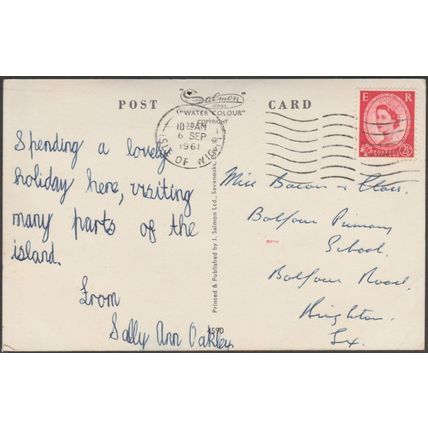 POST CARD
Salmon
SERIES
"WATER COLOUR"
COPYRIGHT
E R
10 AM
6 SEP
1961
ISLE OF WIGHT
2½
Spending a lovely
holiday here, visiting
many parts of the
island.
From
Sally Ann Oakley.
Miss Bacon & Class.
Balfour Primary
School.
Balfour Road,
Brighton.
Sx.
Printed & Published by J. Salmon Ltd., Sevenoaks,
5590